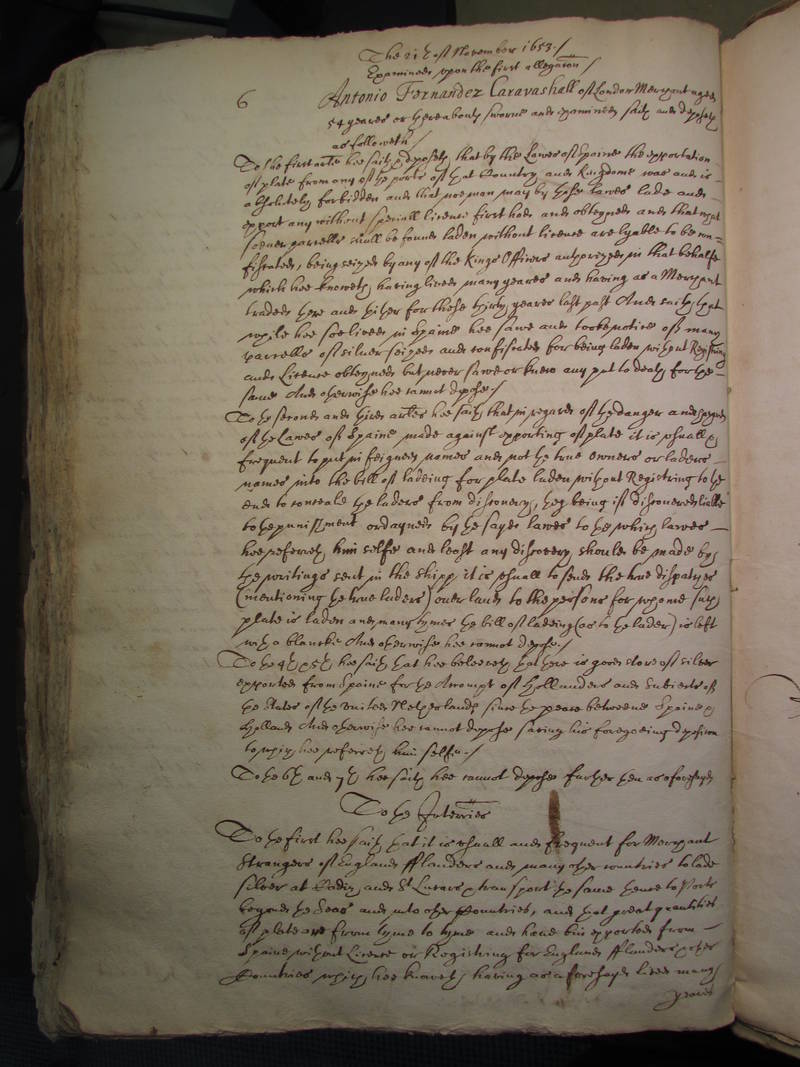 The 21th of November 1653./
Examined upon the first allegation /
6 Antonio Fernandez Caravashall of London Merchant aged
54 yeares or thereabouts sworne and examined saith and deposeth
as followeth /
To the first article hee saith and deposeth that by the Lawes of Spaine the exportation
of plate from any of the ports of that Countrey and Kingdome was and is
absolutely forbidden and that noe man may by those lawes lade and
export any without speciall licence first had and obteyned and that what
soever parcells shall be found laden without licence are lyable to be con=
fiscated, being seized by any of the Kings Officers authorized in that behalfe
which hee knoweth having lived many yeares and having as a Merchant
traded here and thither for these thirty yeares last past And saith that
while hee soe lived in Spaine hee sawe and tooke notice of many
parcells of silver seized and confiscated for being laden without Registring
and Licence obteyned but never sawe or knew any put to death for the
same And otherwise hee cannot depose./
To the second and third articles hee saith that in regard of the danger and
of the Lawes of Spaine made against exporting of plate it is usuall &
frequent to put in feigned names and not the true owners or laders
names into the bill of ladeing for plate laden without Registring to the
end to conceale the laders from discovery, they being if discovered liable
to the punishment ordayned by the sayd lawes to the which lawes
hee referreth him selfe and least any discovery should be made by
the writings sent in the shipp it is usuall to send the true dispatches
(mentioning the true laders) over land to the persons for whome such
plate is laden and many tymes the bill of ladeing (as to the lader) is left
with a blancke And otherwise hee cannot depose./
To the 4th & 5th hee saith that hee beleeveth that there is good store of silver
exported from Spaine for the Accompt of Hollanders and Subiects of
the States of the United Netherlands since the peace betweene Spaine &
Holland And otherwise hee cannot depose saving his foregoeing deposition
to which hee referreth him selfe./
To the 6th and 7th hee saith hee cannot depose further then as aforesayd
To the Interries
To the first hee saith that it is usuall and frequent for Merchant
Strangers of England fflanders and many other countries to lade
silver at Cadiz and St Lucars & transport the same thence to Ports
beyond the Seas and into other Countries, and that great quantities
of plate are from tyme to tyme and have bin exported from
Spaine without Licence or Registring for England fflanders & other
Countries which hee knoweth having as aforesayd lived many
yeares